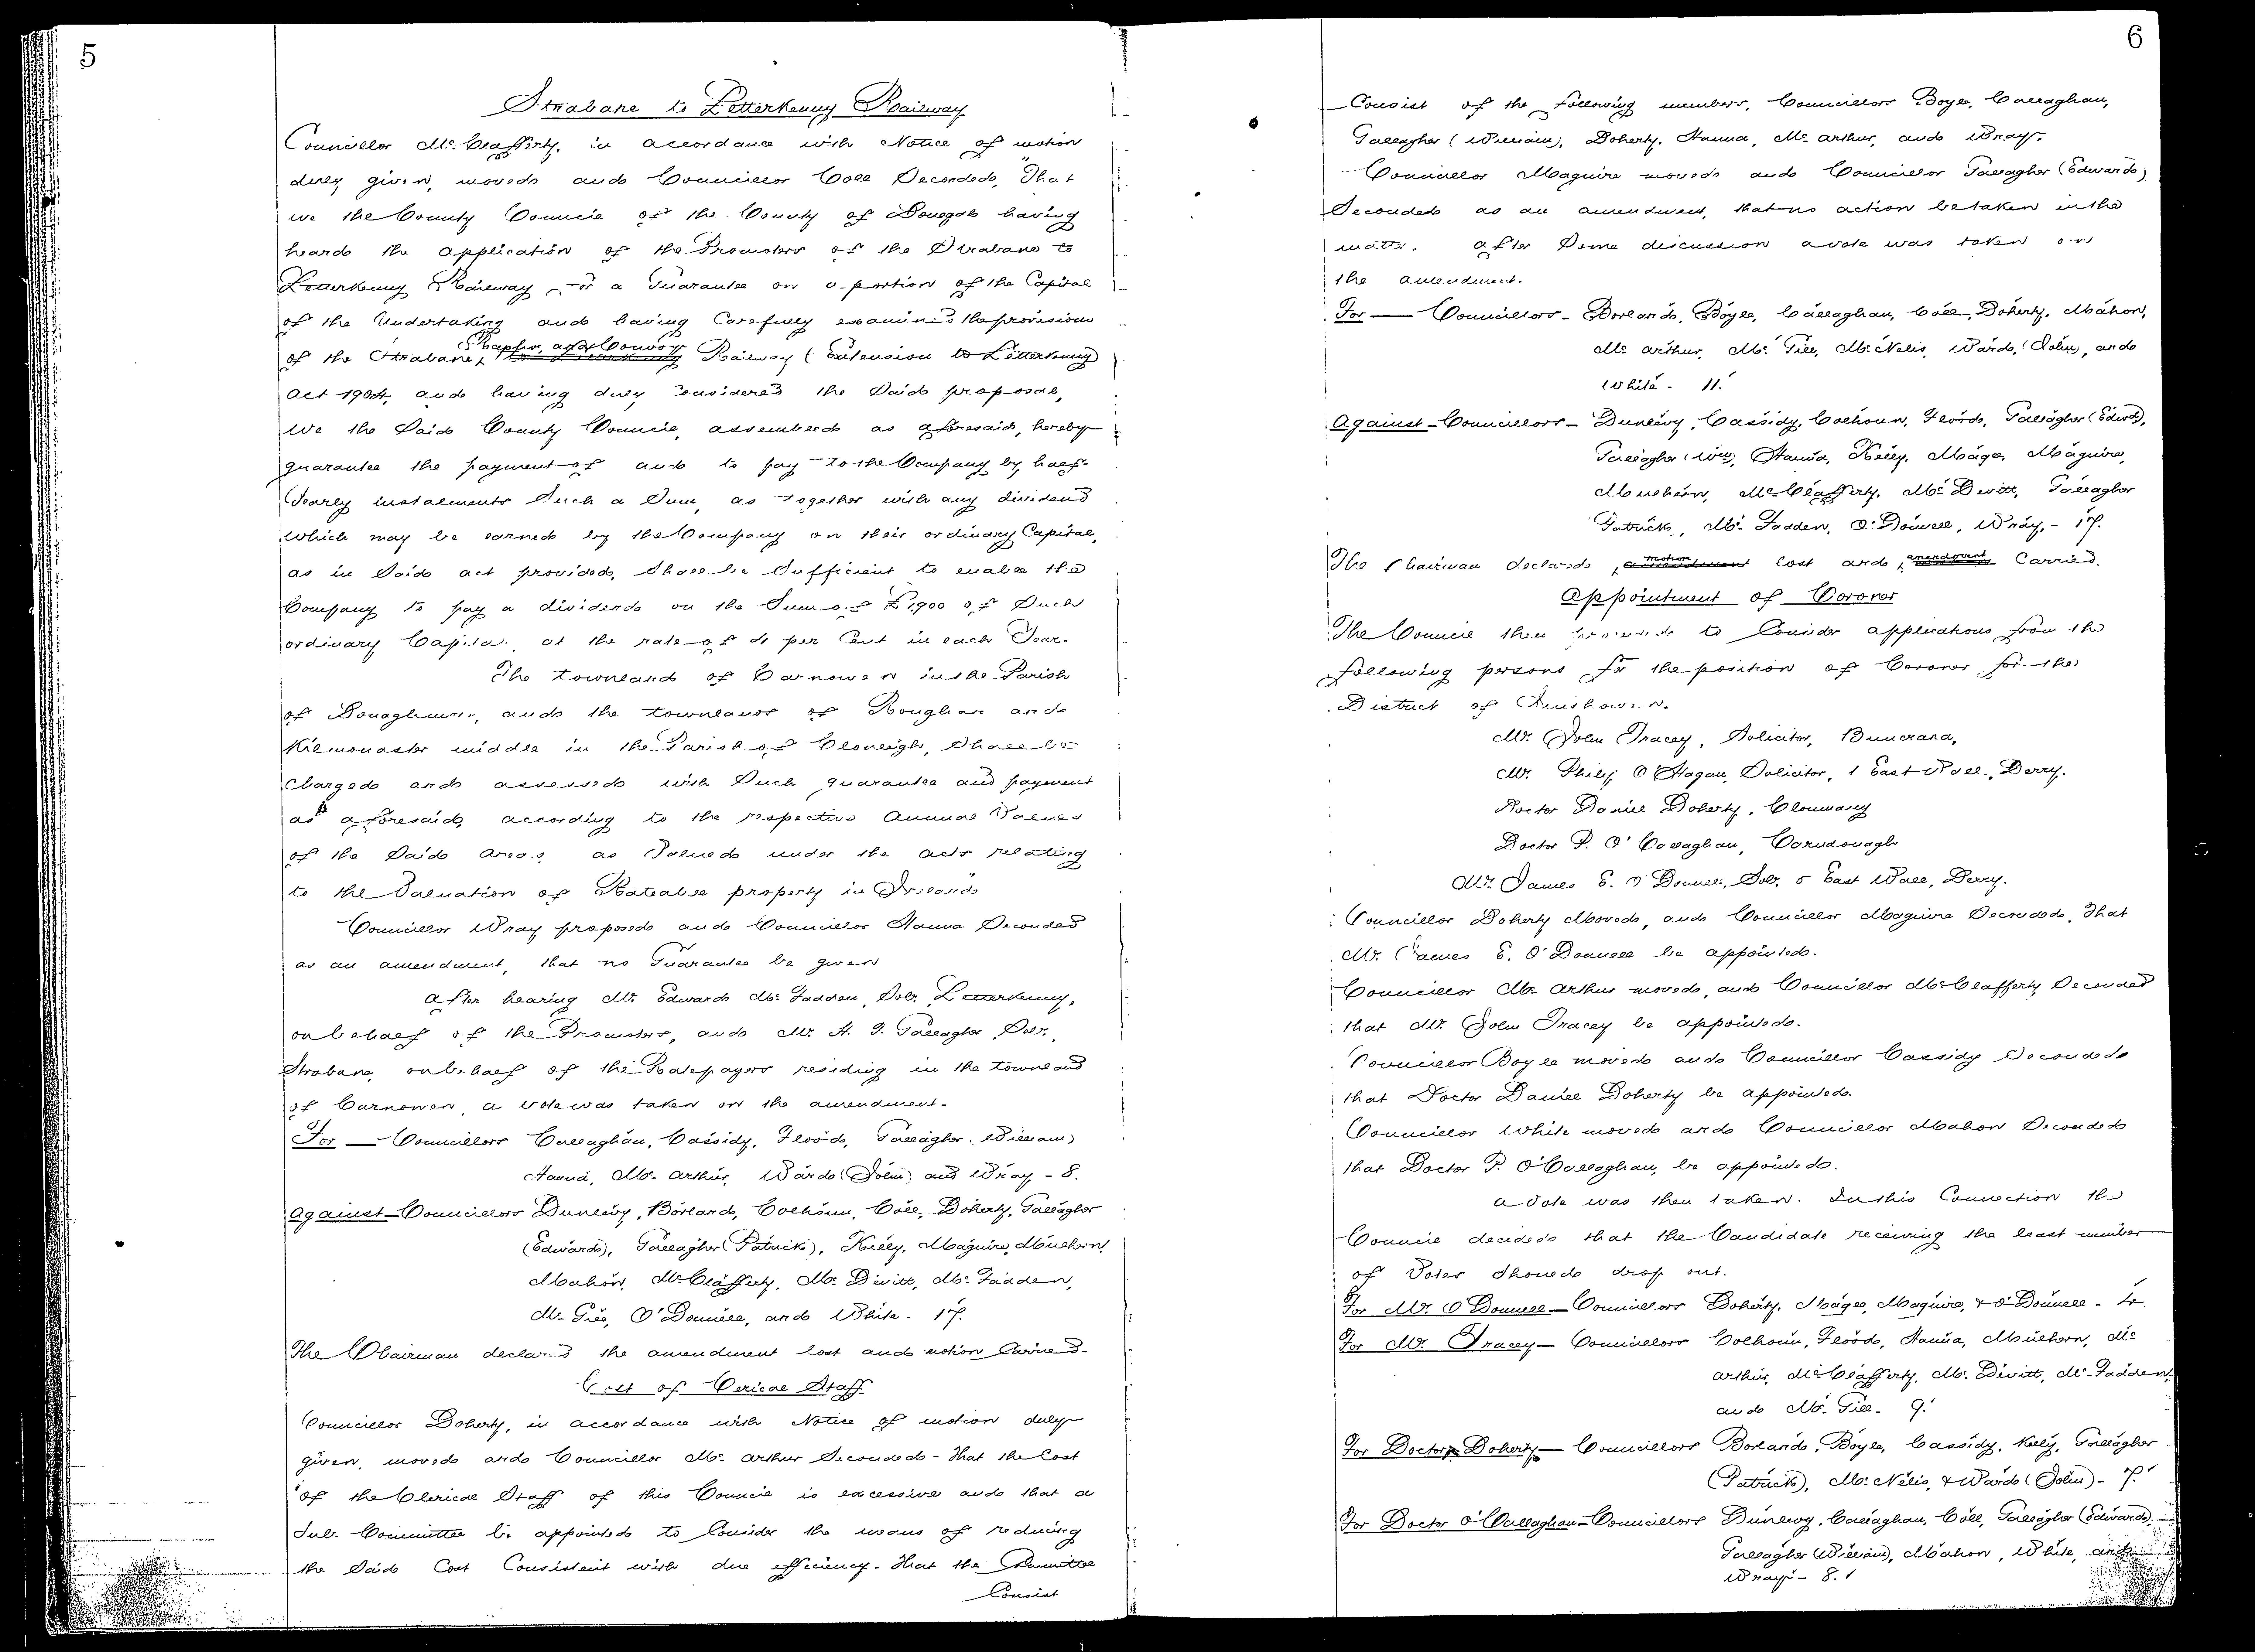 5
Strabane to Letterkenny Railway
Councillor Mc. Clafferty, in accordance with Notice of motion
duly given, moved and Councillor Coll Seconded, "That
we the County Council of the County of Donegal having
heard the application of the Promoters of the Strabane to
Letterkenny Railway for a Guarantee on a portion of the Capital
of the Undertaking and having Carefully examined the provisions
of the Strabane, Raphoe, and Convoy Railway (Extension to Letterkenny)
Act 1904, and having duly considered the Said proposal,
We the Said County Council, assembled as aforesaid, hereby
guarantee the payment of and to pay to the Company by half-
Yearly instalments Such a Sum, as together with any dividend
which may be earned by the Company on their ordinary Capital,
as in Said act provided, Shall be Sufficient to enable the
Company to pay a dividend on the Sum of £1,900 of Such
ordinary Capital, at the rate of 4 per Cent in each Year.
The townland of Carnowen in the Parish
of Donaghmore, and the townlands of Roughan and
Kilmonaster middle in the Parish of Clonleigh, Shall be
Charged and assessed with Such guarantee and payment
as aforesaid, according to the respective Annual Values
of the Said areas as Valued under the acts relating
to the Valuation of Rateable property in Ireland.
Councillor Wray proposed and Councillor Hanna Seconded
as an amendment, that no Guarantee be given
After hearing Mr. Edward Mc. Fadden, Solr. Letterkenny,
on behalf of the Promoters, and Mr. Gallagher Solr.,
Strabane, on behalf of the Ratepayers residing in the townland
of Carnowen, a vote was taken on the amendment.
For — Councillors Callaghan, Cassidy, Flood, Gallagher William)
Hanna, Mc. Arthur, Ward (John) and Wray - 8.
Against - Councillors Dunlevy, Borland, Colhoun, Coll, Doherty, Gallagher
(Edward), Gallagher (Patrick), Kelly, Maguire, Mulhern,
Mahon, Mc. Clafferty, Mc. Devitt, Mc. Fadden,
Mc. Gill, O'Donnell, and White. 17.
The Chairman declared the amendment lost and motion Carried.
Cost of Clerical Staff.
Councillor Doherty, in accordance with Notice of motion duly
given, moved and Councillor Mc. Arthur Seconded - That the Cost
of the Clerical Staff of this Council is excessive and that a
Sub. Committee be appointed to Consider the means of reducing
the Said Cost Consistent with due efficiency. That the Committee
Consist
6
Consist of the following members, Councillors Boyle, Callaghan,
Gallagher (William), Doherty, Hanna, Mc. Arthur, and Wray.
Councillor Maguire moved and Councillor Gallagher (Edward)
Seconded as an amendment, that no action be taken in the
matter. After Some discussion a vote was taken on
the amendment.
For — Councillors - Borland, Boyle, Callaghan, Coll, Doherty, Mahon,
Mc. Arthur, Mc. Gill, Mc. Nelis, Ward, (John), and
White. 11.
Against - Councillors - Dunlevy, Cassidy, Colhoun, Flood, Gallagher (Edwd),
Gallagher (Wm), Hanna, Kelly, Magee, Maguire,
Mulhern, Mc. Clafferty, Mc. Devitt, Gallagher
Patrick, Mc. Fadden, O'Donnell, Wray, - 17.
The Chairman declared motion lost and amendment Carried.
Appointment of Coroner
The Council then proceeded to Consider applications from the
following persons for the position of Coroner for the
District of Inishowen.
Mr. John Tracey, Solicitor, Buncrana,
Mr. Philip O'Hagan, Solicitor, 1 East Wall, Derry.
Doctor Daniel Doherty, Clonmany
Doctor P. O'Callaghan, Carndonagh
Mr. James E. O'Donnell, Solr, 5 East Wall, Derry.
Councillor Doherty Moved, and Councillor Maguire Seconded, That
Mr. James E. O'Donnell be appointed.
Councillor Mc. Arthur moved, and Councillor Mc. Clafferty Seconded
that Mr. John Tracey be appointed.
Councillor Boyle moved and Councillor Cassidy Seconded
that Doctor Daniel Doherty be appointed.
Councillor White moved and Councillor Mahon Seconded
that Doctor P. O'Callaghan, be appointed.
A Vote was then taken. In this Connection the
Council decided that the Candidate receiving the least number
of Votes Should drop out.
For Mr. O'Donnell - Councillors Doherty, Magee, Maguire, & O'Donnell - 4.
For Mr. Tracey - Councillors Colhoun, Flood, Hanna, Mulhern, Mc.
Arthur, Mc. Clafferty, Mc. Devitt, Mc. Fadden,
and Mc. Gill. 9.
For Doctor Doherty - Councillors Borland, Boyle, Cassidy, Kelly, Gallagher
(Patrick), Mc. Nelis, & Ward (John) - 7.
For Doctor O'Callaghan - Councillors Dunlevy, Callaghan, Coll, Gallagher (Edward),
Gallagher (William), Mahon, White, and
Wray - 8.